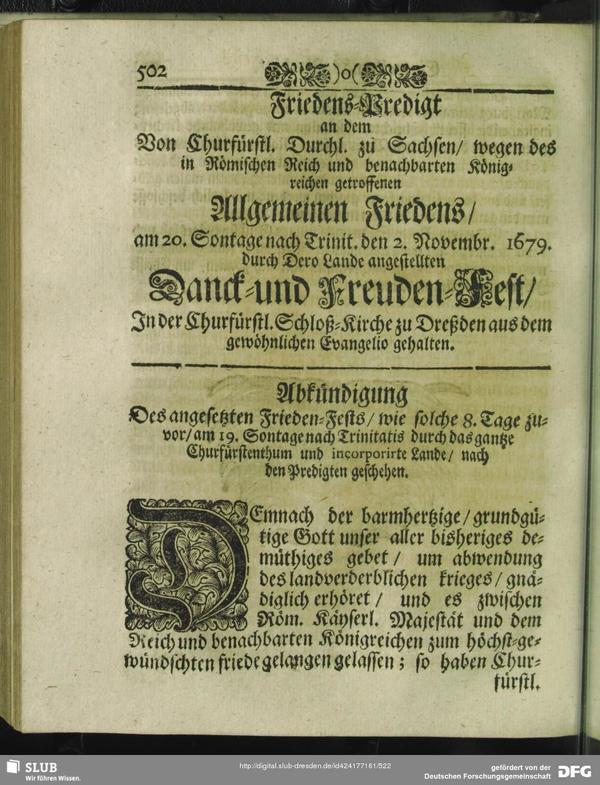 502 )o(
Friedens-Predigt
an dem
Von Churfürstl. Durchl. zu Sachsen/ wegen des
in Römischen Reich und benachbarten König-
reichen getroffenen
Allgemeinen Friedens/
am 20. Sontage nach Trinit. den 2. Novembr. 1679.
durch Dero Lande angestellten
Danck-und Freuden-Fest/
In der Churfürstl. Schloß-Kirche zu Dreßden aus dem
gewöhnlichen Evangelio gehalten.
Abkündigung
Des angesetzten Frieden-Fests/ wie solche 8. Tage zu-
vor/ am 19. Sontage nach Trinitatis durch das gantze
Churfürstenthum und incorporirte Lande/ nach
den Predigten geschehen.
DEmnach der barmhertzige/ grundgü-
tige Gott unser aller bisheriges de-
müthiges gebet/ um abwendung
des landverderblichen krieges/ gnä-
diglich erhöret/ und es zwischen
Röm. Käyserl. Majestät und dem
Reich und benachbarten Königreichen zum höchst-ge-
wündschten friede gelangen gelassen; so haben Chur-
fürstl.
SLUB
Wir führen Wissen.
http://digital.slub-dresden.de/id424177161/522
gefördert von der
Deutschen Forschungsgemeinschaft
DFG